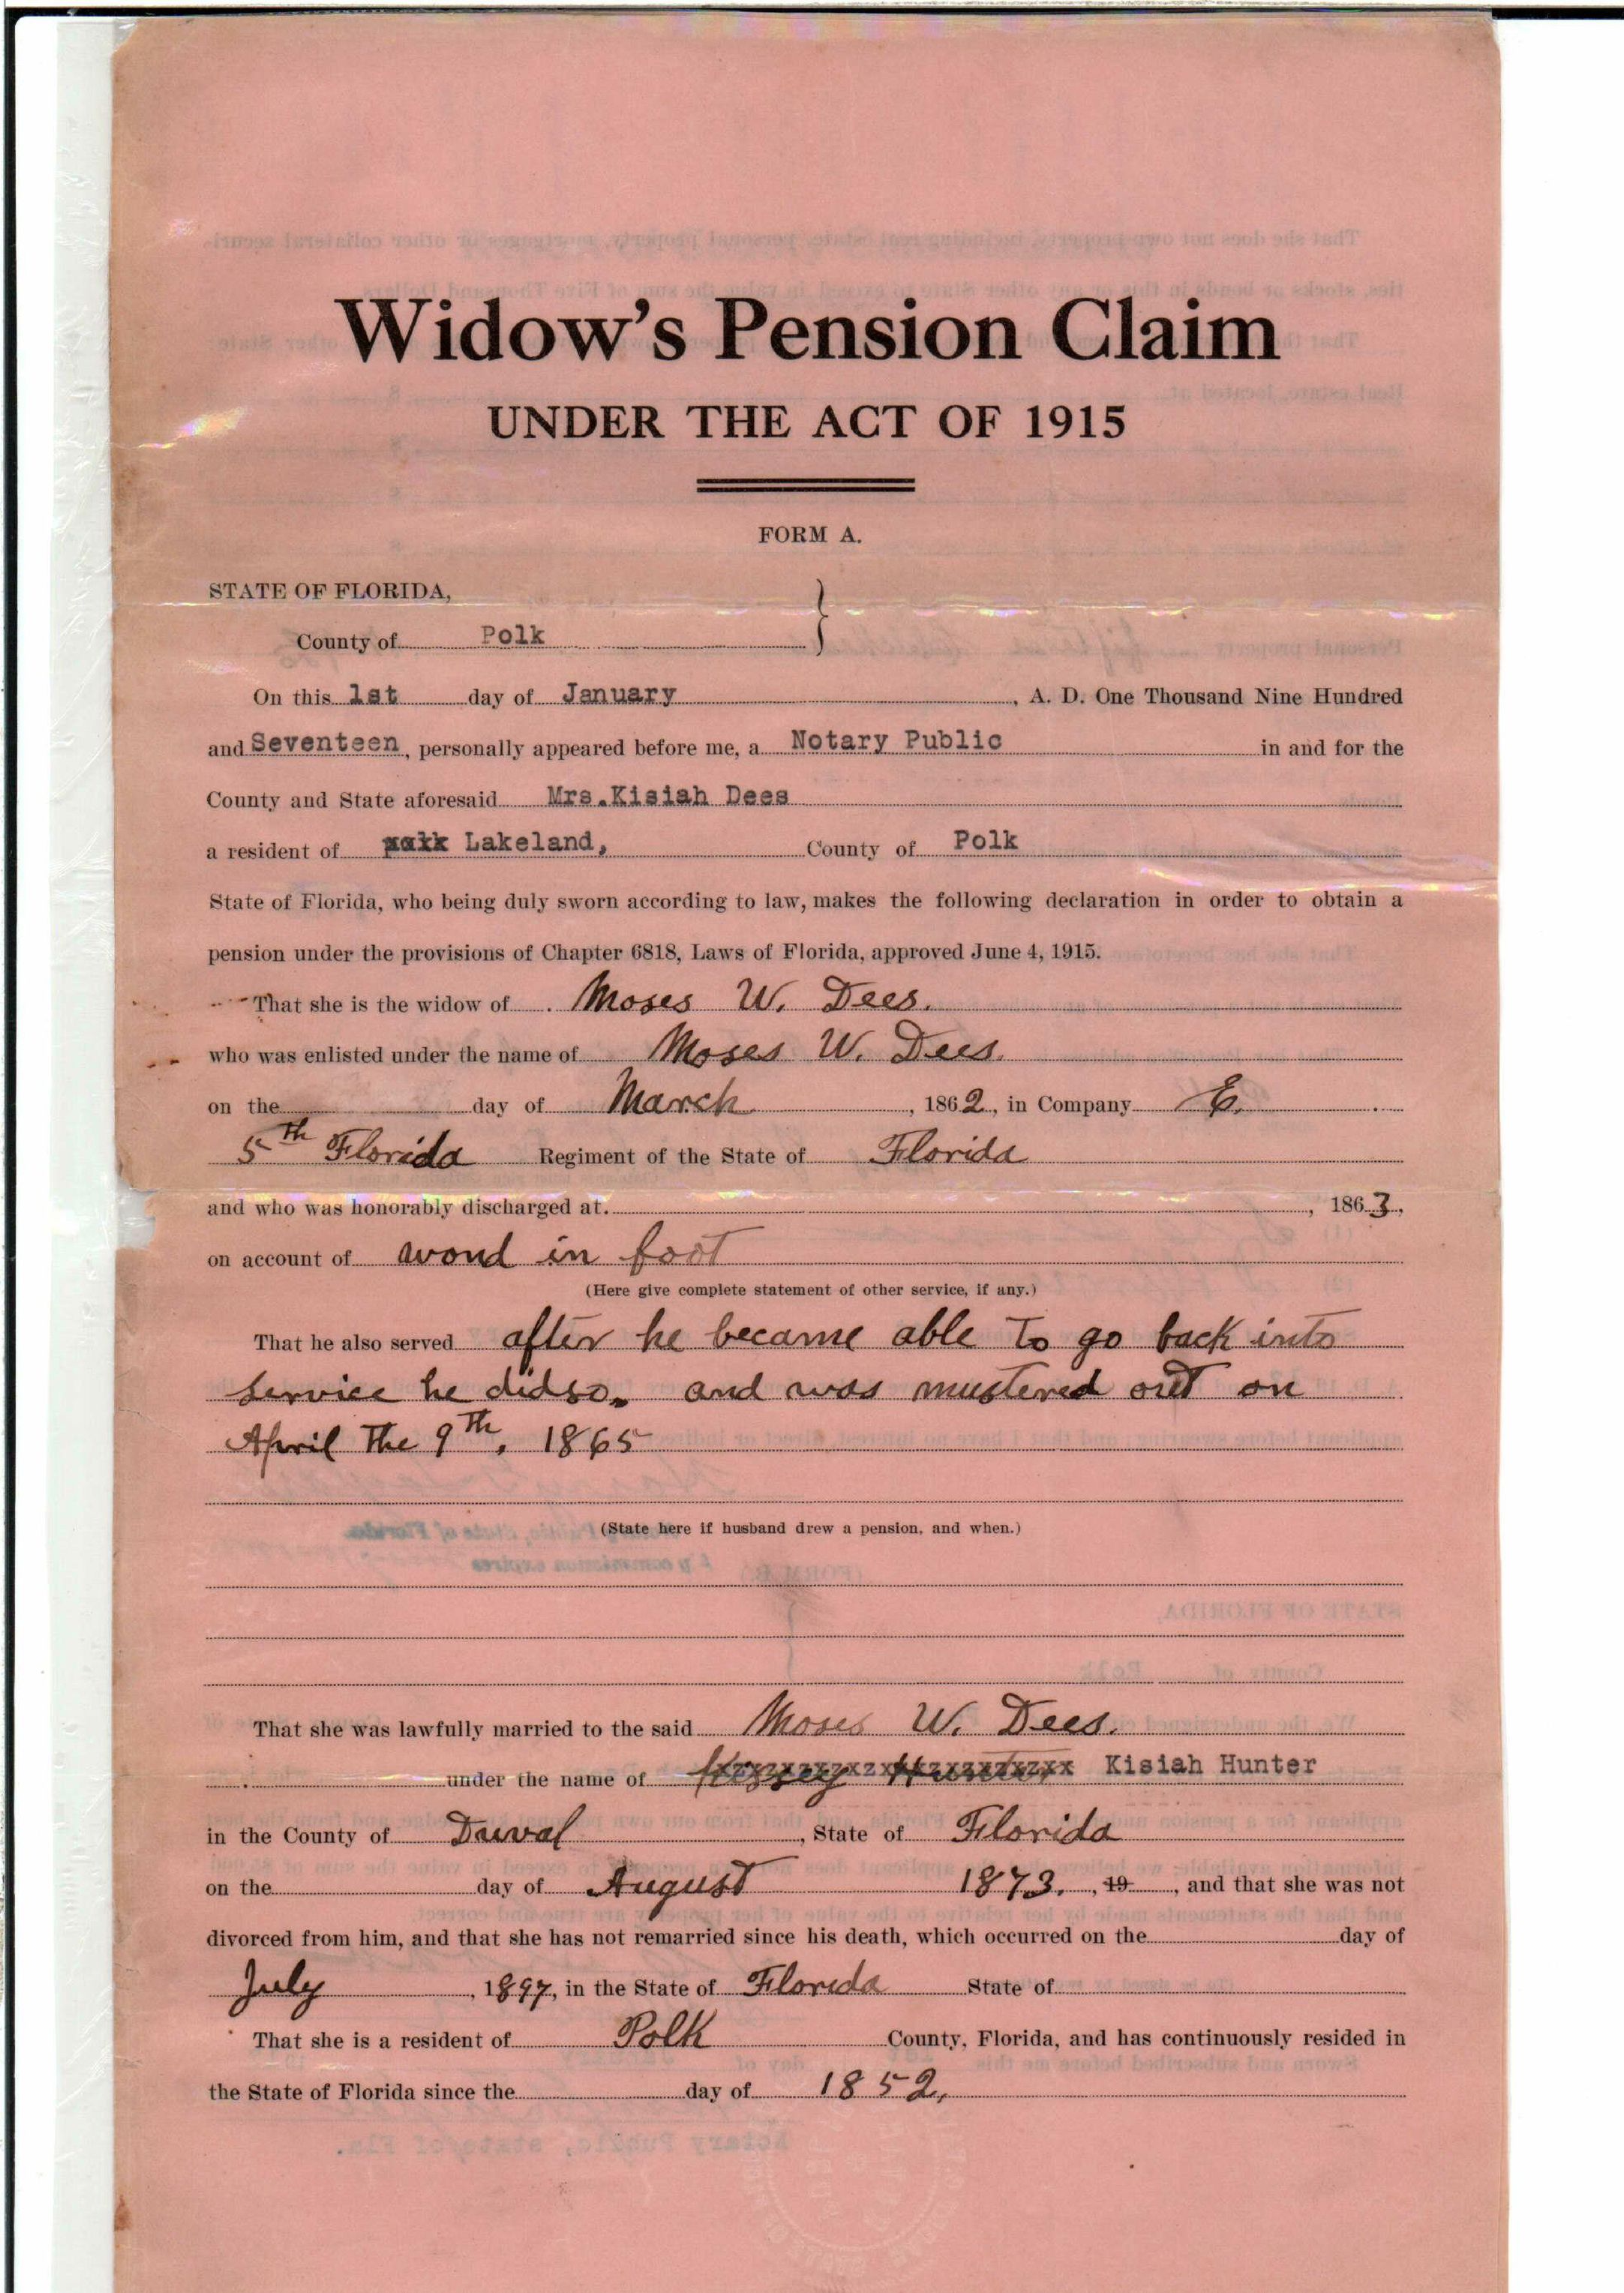 Widow's Pension Claim
UNDER THE ACT OF 1915
FORM A.
STATE OF FLORIDA,
County of Polk
On this 1st day of January, A. D. One Thousand Nine Hundred
and Seventeen, personally appeared before me, a Notary Public in and for the
County and State aforesaid Mrs.Kisiah Dees
a resident of Lakeland, County of Polk
State of Florida, who being duly sworn according to law, makes the following declaration in order to obtain a
pension under the provisions of Chapter 6818, Laws of Florida, approved June 4, 1915.
That she is the widow of Moses W. Dees.
who was enlisted under the name of Moses W. Dees.
on the day of March, 1862, in Company E.
5th Florida Regiment of the State of Florida
and who was honorably discharged at. , 1863.
on account of wond in foot
(Here give complete statement of other service, if any.)
That he also served after he became able to go back into
service he did so. and was mustered out on
April the 9th, 1865
(State here if husband drew a pension, and when.)
That she was lawfully married to the said Moses W. Dees.
under the name of Kisiah Hunter
in the County of Duval, State of Florida
on the day of August 1873. , 19 , and that she was not
divorced from him, and that she has not remarried since his death, which occurred on the day of
July, 1897, in the State of Florida State of
That she is a resident of Polk County, Florida, and has continuously resided in
the State of Florida since the day of 1852.